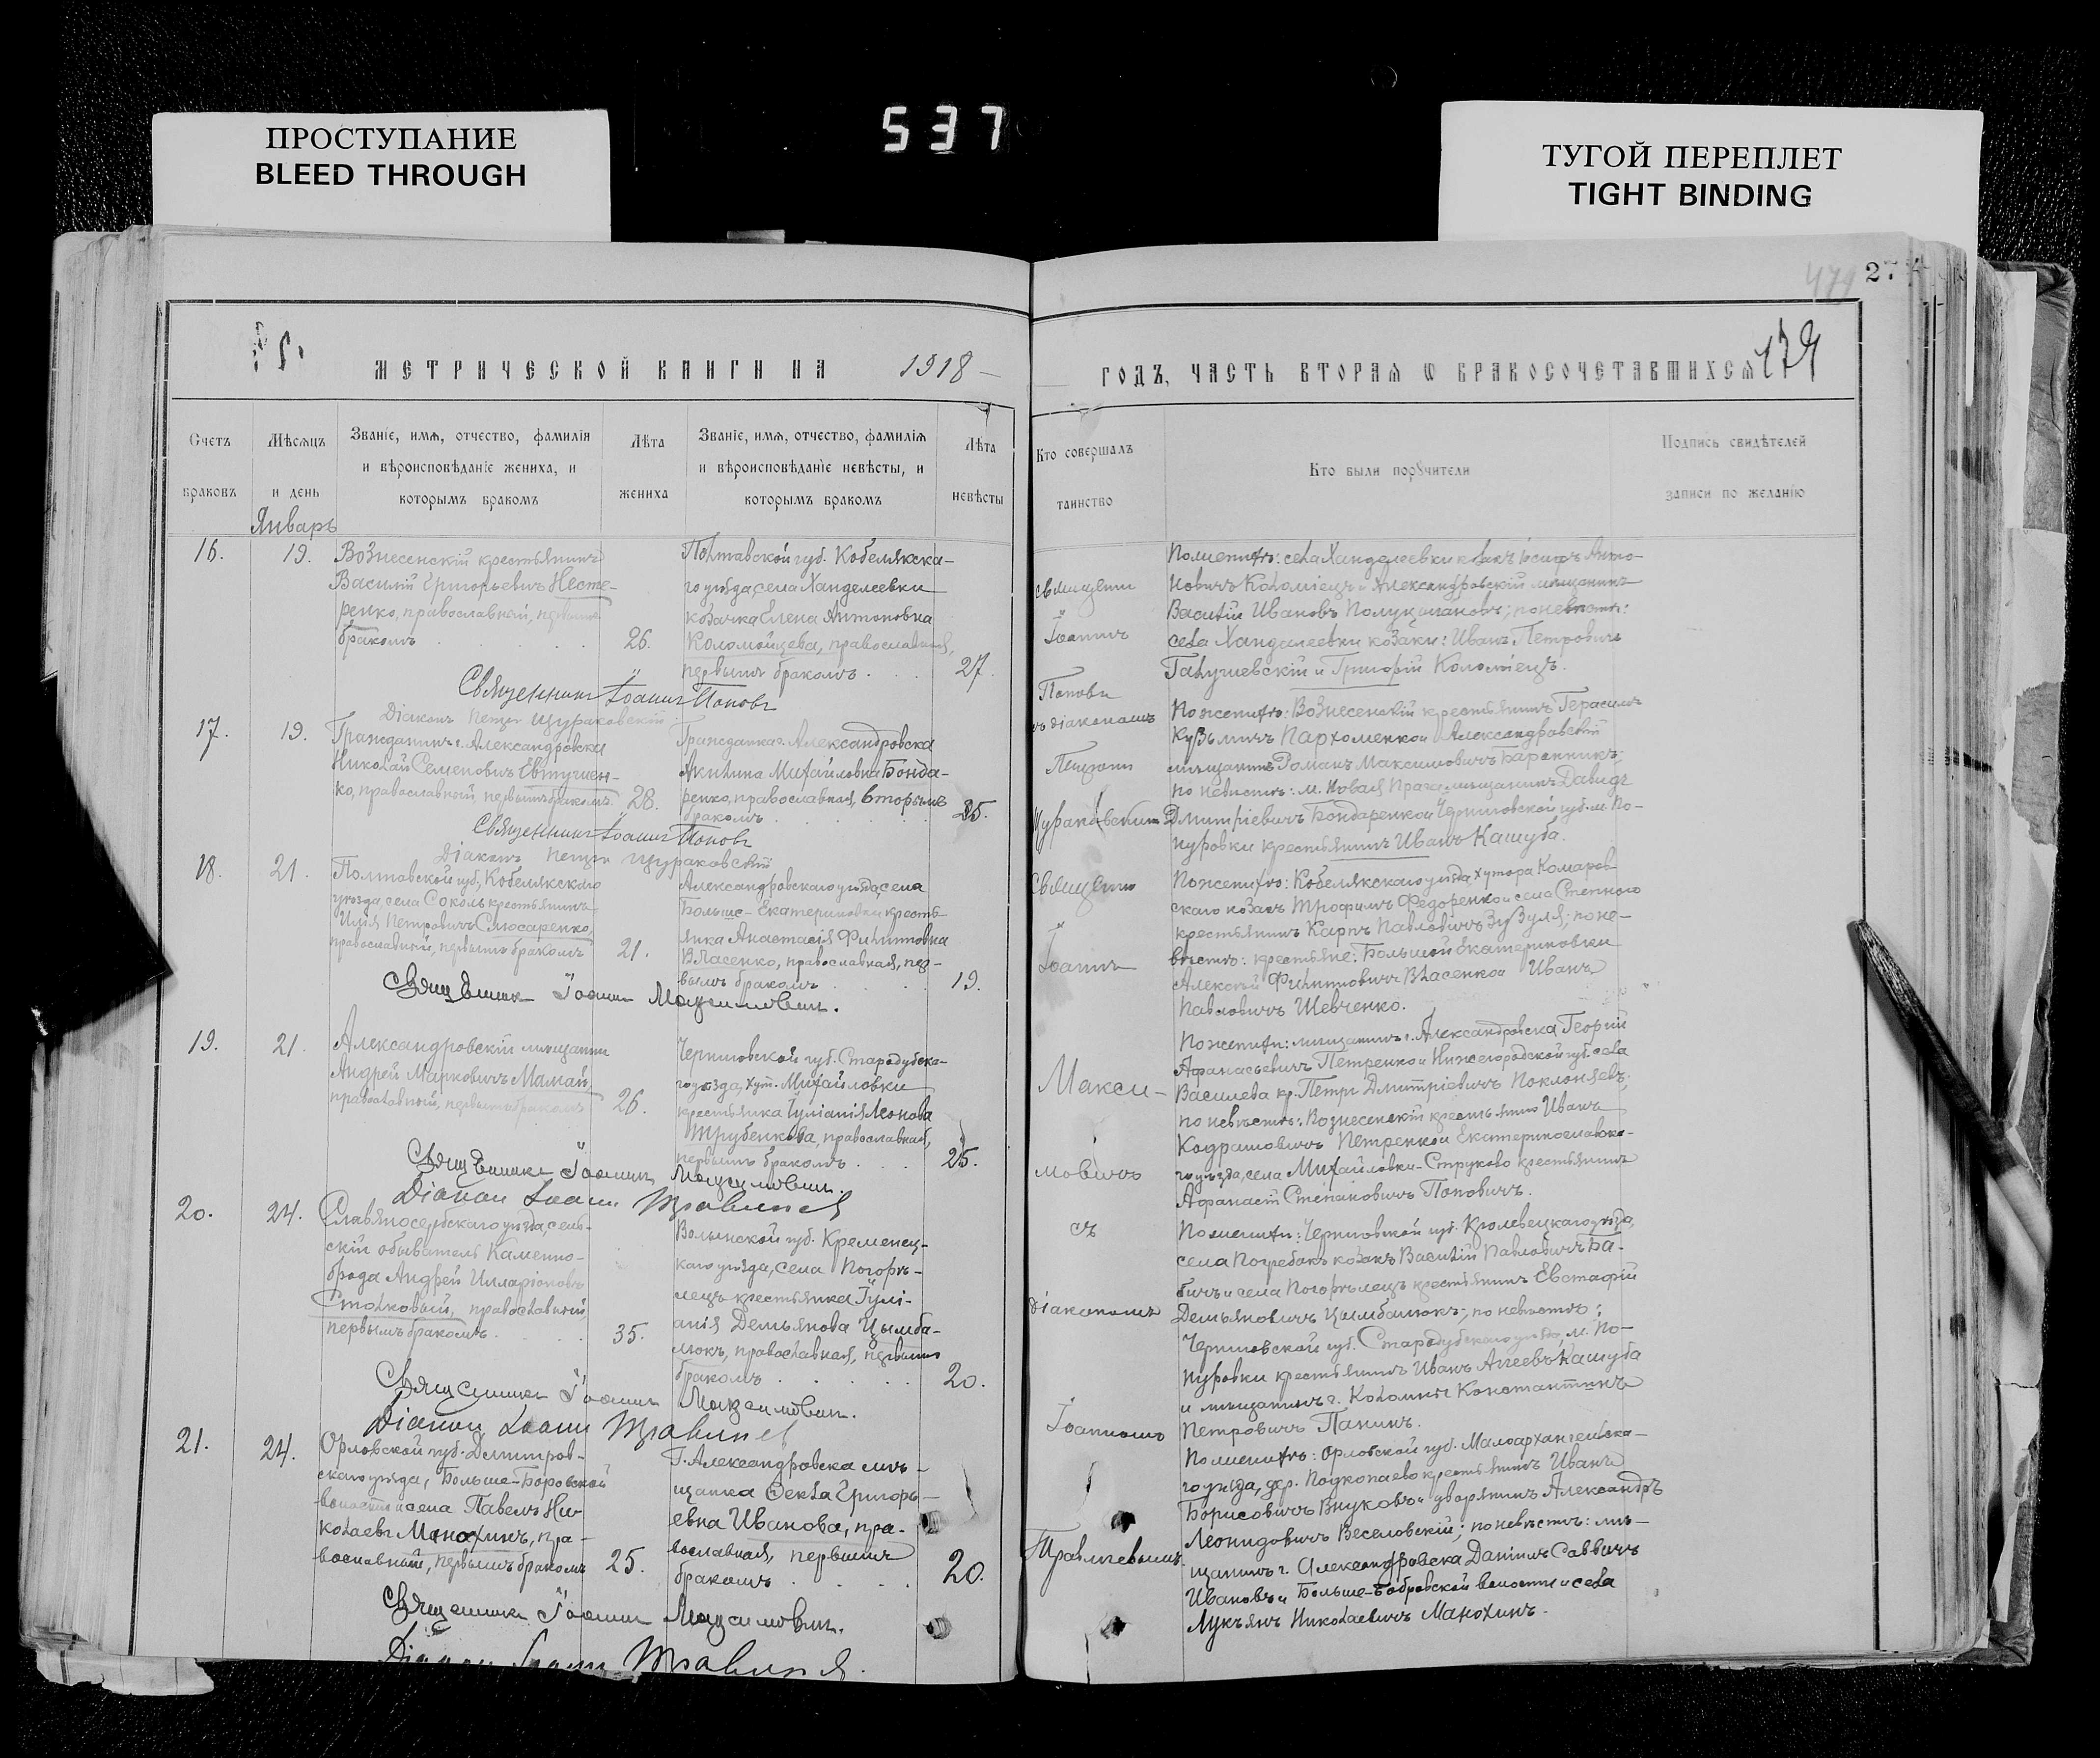 537
ПРОСТУПАНИЕ
BLEED THROUGH
ТУГОЙ ПЕРЕПЛЕТ
TIGHT BINDING
479
27
МЕТРИЧЕСКОЙ КНИГИ НА 1918
Счетъ браковъ
Мѣсяцъ и день
Званіе, имя, отчество, фамилія и вѣроисповѣданіе жениха, и которымъ бракомъ
Лѣта жениха
Званіе, имя, отчество, фамилія и вѣроисповѣданіе невѣсты, и которымъ бракомъ
Лѣта невѣсты
Январь
16.
19.
Вознесенскій крестьянинъ
Василій Григорьевичъ Несте-
ренко, православный, первымъ
бракомъ
26.
Полтавской губ. Кобелякска-
го уѣзда, села Ханделеевки
козачка Елена Антоновна
Коломойцева, православная,
первымъ бракомъ
27
Священникъ Іоаннъ Поповъ
Діаконъ Петръ Щураковскій
17.
19.
Гражданинъ г. Александровска
Николай Семеновичъ Евтушен-
ко, православный, первымъ бракомъ
28.
Гражданка г. Александровска
Акилина Михайловна Бонда-
ренко, православная, вторымъ
бракомъ
25.
Священникъ Іоаннъ Поповъ
Діаконъ Петръ Щураковскій
18.
21.
Полтавской губ., Кобелякскаго
уѣзда, села Соколь крестьянинъ
Илія Петровичъ Слюсаренко,
православный, первымъ бракомъ
21.
Александровскаго уѣзда, села
Больше-Екатериновки кресть-
янка Анастасія Филипповна
Власенко, православная, пер-
вымъ бракомъ
19.
Священникъ Іоаннъ Максимовичъ.
19.
21.
Александровскій мѣщанинъ
Андрей Марковичъ Мамай,
православный, первымъ бракомъ
26.
Черниговской губ. Стародубска-
го уѣзда, хут. Михайловки
крестьянка Іуліанія Леонова
Трубенкова, православная,
первымъ бракомъ
25.
Священникъ Іоаннъ Максимовичъ.
Діаконъ Іоаннъ
20.
24.
Славяносербскаго уѣзда, сель-
скій обыватель Каменно-
брода Андрей Илларіоновъ
Столковый, православный,
первымъ бракомъ
35.
Волынской губ. Кременец-
каго уѣзда, села Погорѣ-
лецъ крестьянка Іулі-
анія Демьянова Цымба-
люкъ, православная, первымъ
бракомъ
20.
Священникъ Іоаннъ Максимовичъ.
Діаконъ Іоаннъ
21.
24.
Орловской губ. Дмитров-
скаго уѣзда, Больше-Боровской
волости и села Павелъ Ни-
колаевъ Манохинъ, пра-
вославный, первымъ бракомъ
25.
Г. Александровска мѣ-
щанка Ѳекла Григорь-
евна Иванова, пра-
вославная, первымъ
бракомъ
20.
Священникъ Іоаннъ Максимовичъ.
Діаконъ Іоаннъ
ГОДЪ, ЧАСТЬ ВТОРАЯ Ѡ БРАКОСОЧЕТАВШИХСЯ
179
Кто совершалъ таинство
Кто были поручители
Подпись свидѣтелей записи по желанію
Священ
Іоаннъ
Поповъ
съ діакономъ
Петромъ
Щураковскимъ
Священ
Іоаннъ
Макси-
мовичъ
съ
діакономъ
Іоанномъ
По женихѣ: села Ханделеевки козакъ Іосифъ Анто-
новичъ Коломіецъ и Александровскій мѣщанинъ
Василій Ивановъ Полуцыгановъ; по невѣстѣ:
села Ханделеевки козаки: Иванъ Петровичъ
Галушевскій и Григорій Коломіецъ.
По женихѣ: Вознесенскій крестьянинъ Герасимъ
Кузьмичъ Пархоменко и Александровскій
мѣщанинъ Романъ Максимовичъ Баранникъ;
по невѣстѣ: м. Новая Прага мѣщанинъ Давидъ
Дмитріевичъ Бондаренко и Черниговской губ. м. По-
нуровки крестьянинъ Иванъ Кашуба.
По женихѣ: Кобелякскаго уѣзда, хутора Комаров-
скаго козакъ Трофимъ Федоренко и села Степного
крестьянинъ Карпъ Павловичъ Зузуля; по не-
вѣстѣ: крестьяне: Большой Екатериновки
Алексѣй Филипповичъ Власенко и Иванъ
Павловичъ Шевченко.
По женихѣ: мѣщанинъ г. Александровска Георгій
Афанасьевичъ Петренко и Нижегородской губ. села
Василева кр. Петръ Дмитріевичъ Поклоняевъ;
по невѣстѣ: Вознесенскій крестьянинъ Иванъ
Кодратовичъ Петренко и Екатеринославска-
го уѣзда, села Михайловки-Струково крестьянинъ
Афанасій Степановичъ Поповичъ.
По женихѣ: Черниговской губ. Кролевецкаго уѣзда,
села Погребокъ козакъ Василій Павловичъ Ба-
бичъ и села Погорѣлецъ крестьянинъ Евстафій
Демьяновичъ Цымбалюкъ; по невѣстѣ:
Черниговской губ. Стародубскаго уѣзда, м. По-
нуровки крестьянинъ Иванъ Агеевъ Кашуба
и мѣщанинъ г. Коломны Константинъ
Петровичъ Панинъ.
По женихѣ: Орловской губ. Малоархангельска-
го уѣзда, дер. Подкопаево крестьянинъ Иванъ
Борисовичъ Внуковъ и дворянинъ Александръ
Леонидовичъ Веселовскій; по невѣстѣ: мѣ-
щанинъ г. Александровска Даніилъ Саввичъ
Ивановъ и Больше-Бобровской волости и села
Лукъянъ Николаевичъ Манохинъ.